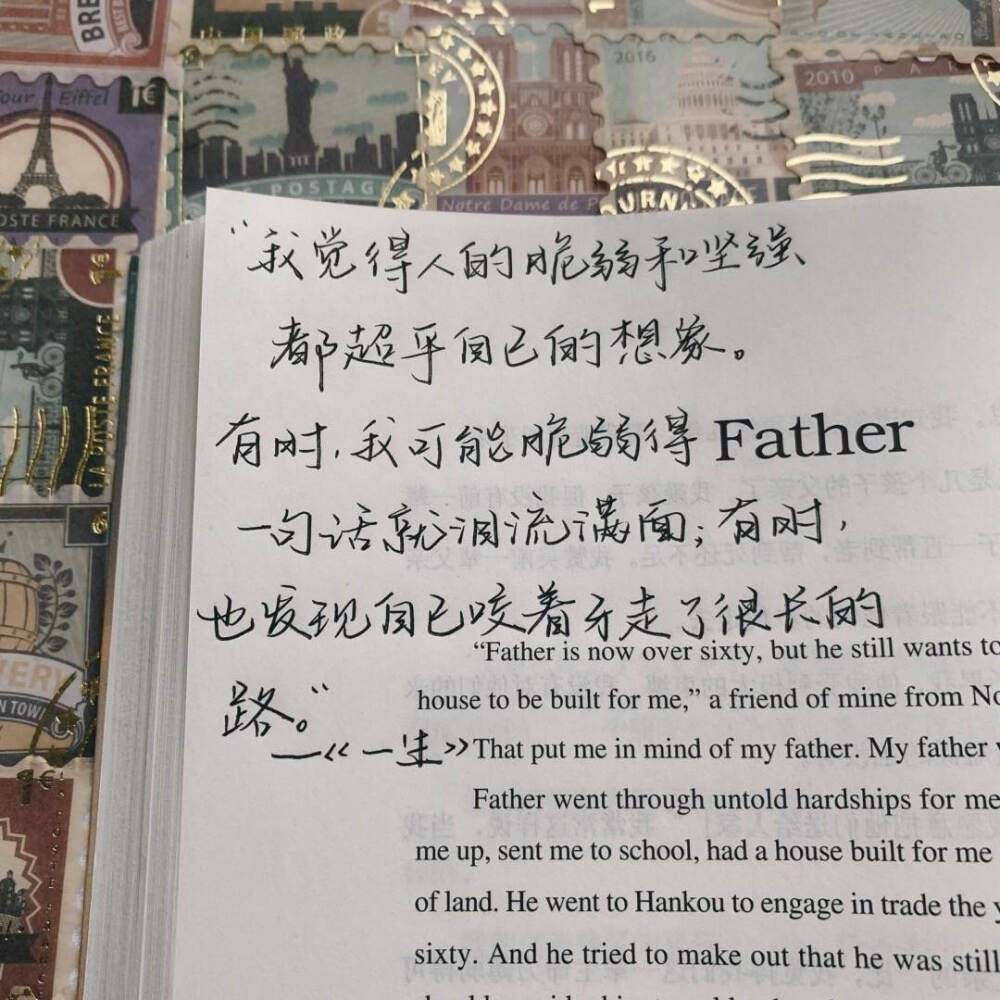 BRE
中国邮政
2016
2010
our Eiffel
1€
POSTAG
Notre Dame de P
URN
OSTE FRANCE
LA POSTE FRANCE
VERY
N TOWN
1€
“我觉得人的脆弱和坚强
都超乎自己的想象。
有时,我可能脆弱得
Father
一句话就泪流满面;有时,
也发现自己咬着牙走了很长的
路。”
—《一生》
“Father is now over sixty, but he still wants to
house to be built for me,” a friend of mine from No
That put me in mind of my father. My father
Father went through untold hardships for me
me up, sent me to school, had a house built for me
of land. He went to Hankou to engage in trade the y
sixty. And he tried to make out that he was still